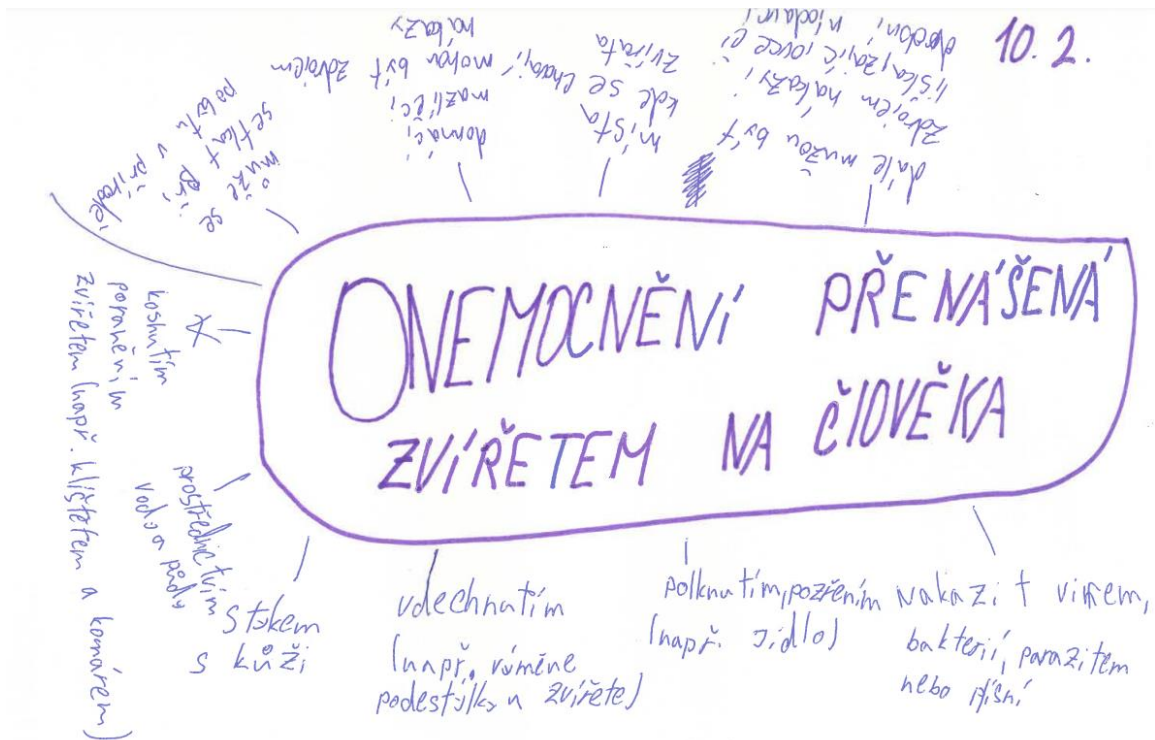 10.2.
ONEMOCNĚNÍ PŘENÁŠENÁ
ZVÍŘETEM NA ČlOVĚKA
může se
setkat při
pobytu v přírodě
domácí
mazlíčci
mohou být zdrojem
nákazy
místa
kde se chovají
zvířata
dále můžou být
zdrojem nákazy i
liška, zajíc, ovce či
kousnutím
poraněním
zvířetem (např. klíštětem a komárem)
prostřednictvím
vody a půdy
stykem
s kůži
vdechnutím
(např. výměne
podestýlky u zvířete)
polknutím, pozřením
(např. jídlo)
nakazit virem,
bakterií, parazitem
nebo plísní